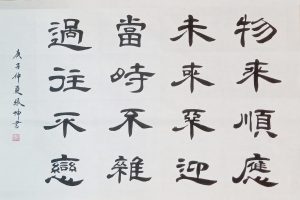 物来順應
未來不迎
當時不雜
過往不戀
庚子仲夏張坤書